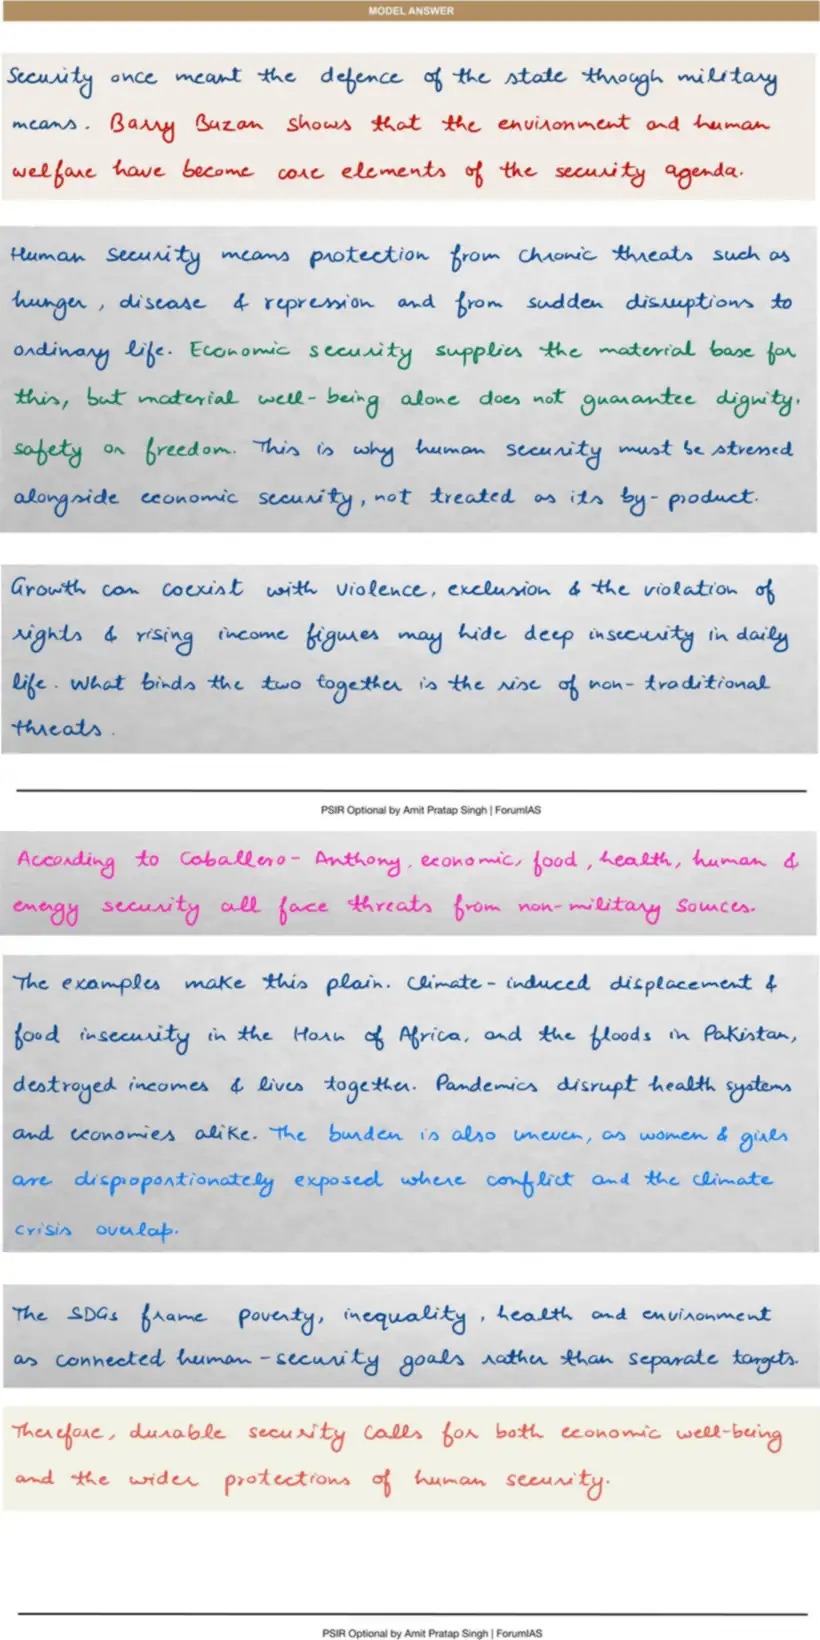 MODEL ANSWER
Security once meant the defence of the state through military
means. Barry Buzan shows that the environment and human
welfare have become core elements of the security agenda.
Human security means protection from chronic threats such as
hunger, disease & repression and from sudden disruptions to
ordinary life. Economic security supplies the material base for
this, but material well-being alone does not guarantee dignity,
safety or freedom. This is why human security must be stressed
alongside economic security, not treated as its by-product.
Growth can coexist with violence, exclusion & the violation of
rights & rising income figures may hide deep insecurity in daily
life. What binds the two together is the rise of non-traditional
threats.
PSIR Optional by Amit Pratap Singh | ForumIAS
According to Caballero-Anthony, economic, food, health, human &
energy security all face threats from non-military sources.
The examples make this plain. Climate-induced displacement &
food insecurity in the Horn of Africa, and the floods in Pakistan,
destroyed incomes & lives together. Pandemics disrupt health systems
and economies alike. The burden is also uneven, as women & girls
are disproportionately exposed where conflict and the climate
crisis overlap.
The SDGs frame poverty, inequality, health and environment
as connected human-security goals rather than separate targets.
Therefore, durable security calls for both economic well-being
and the wider protections of human security.
PSIR Optional by Amit Pratap Singh | ForumIAS